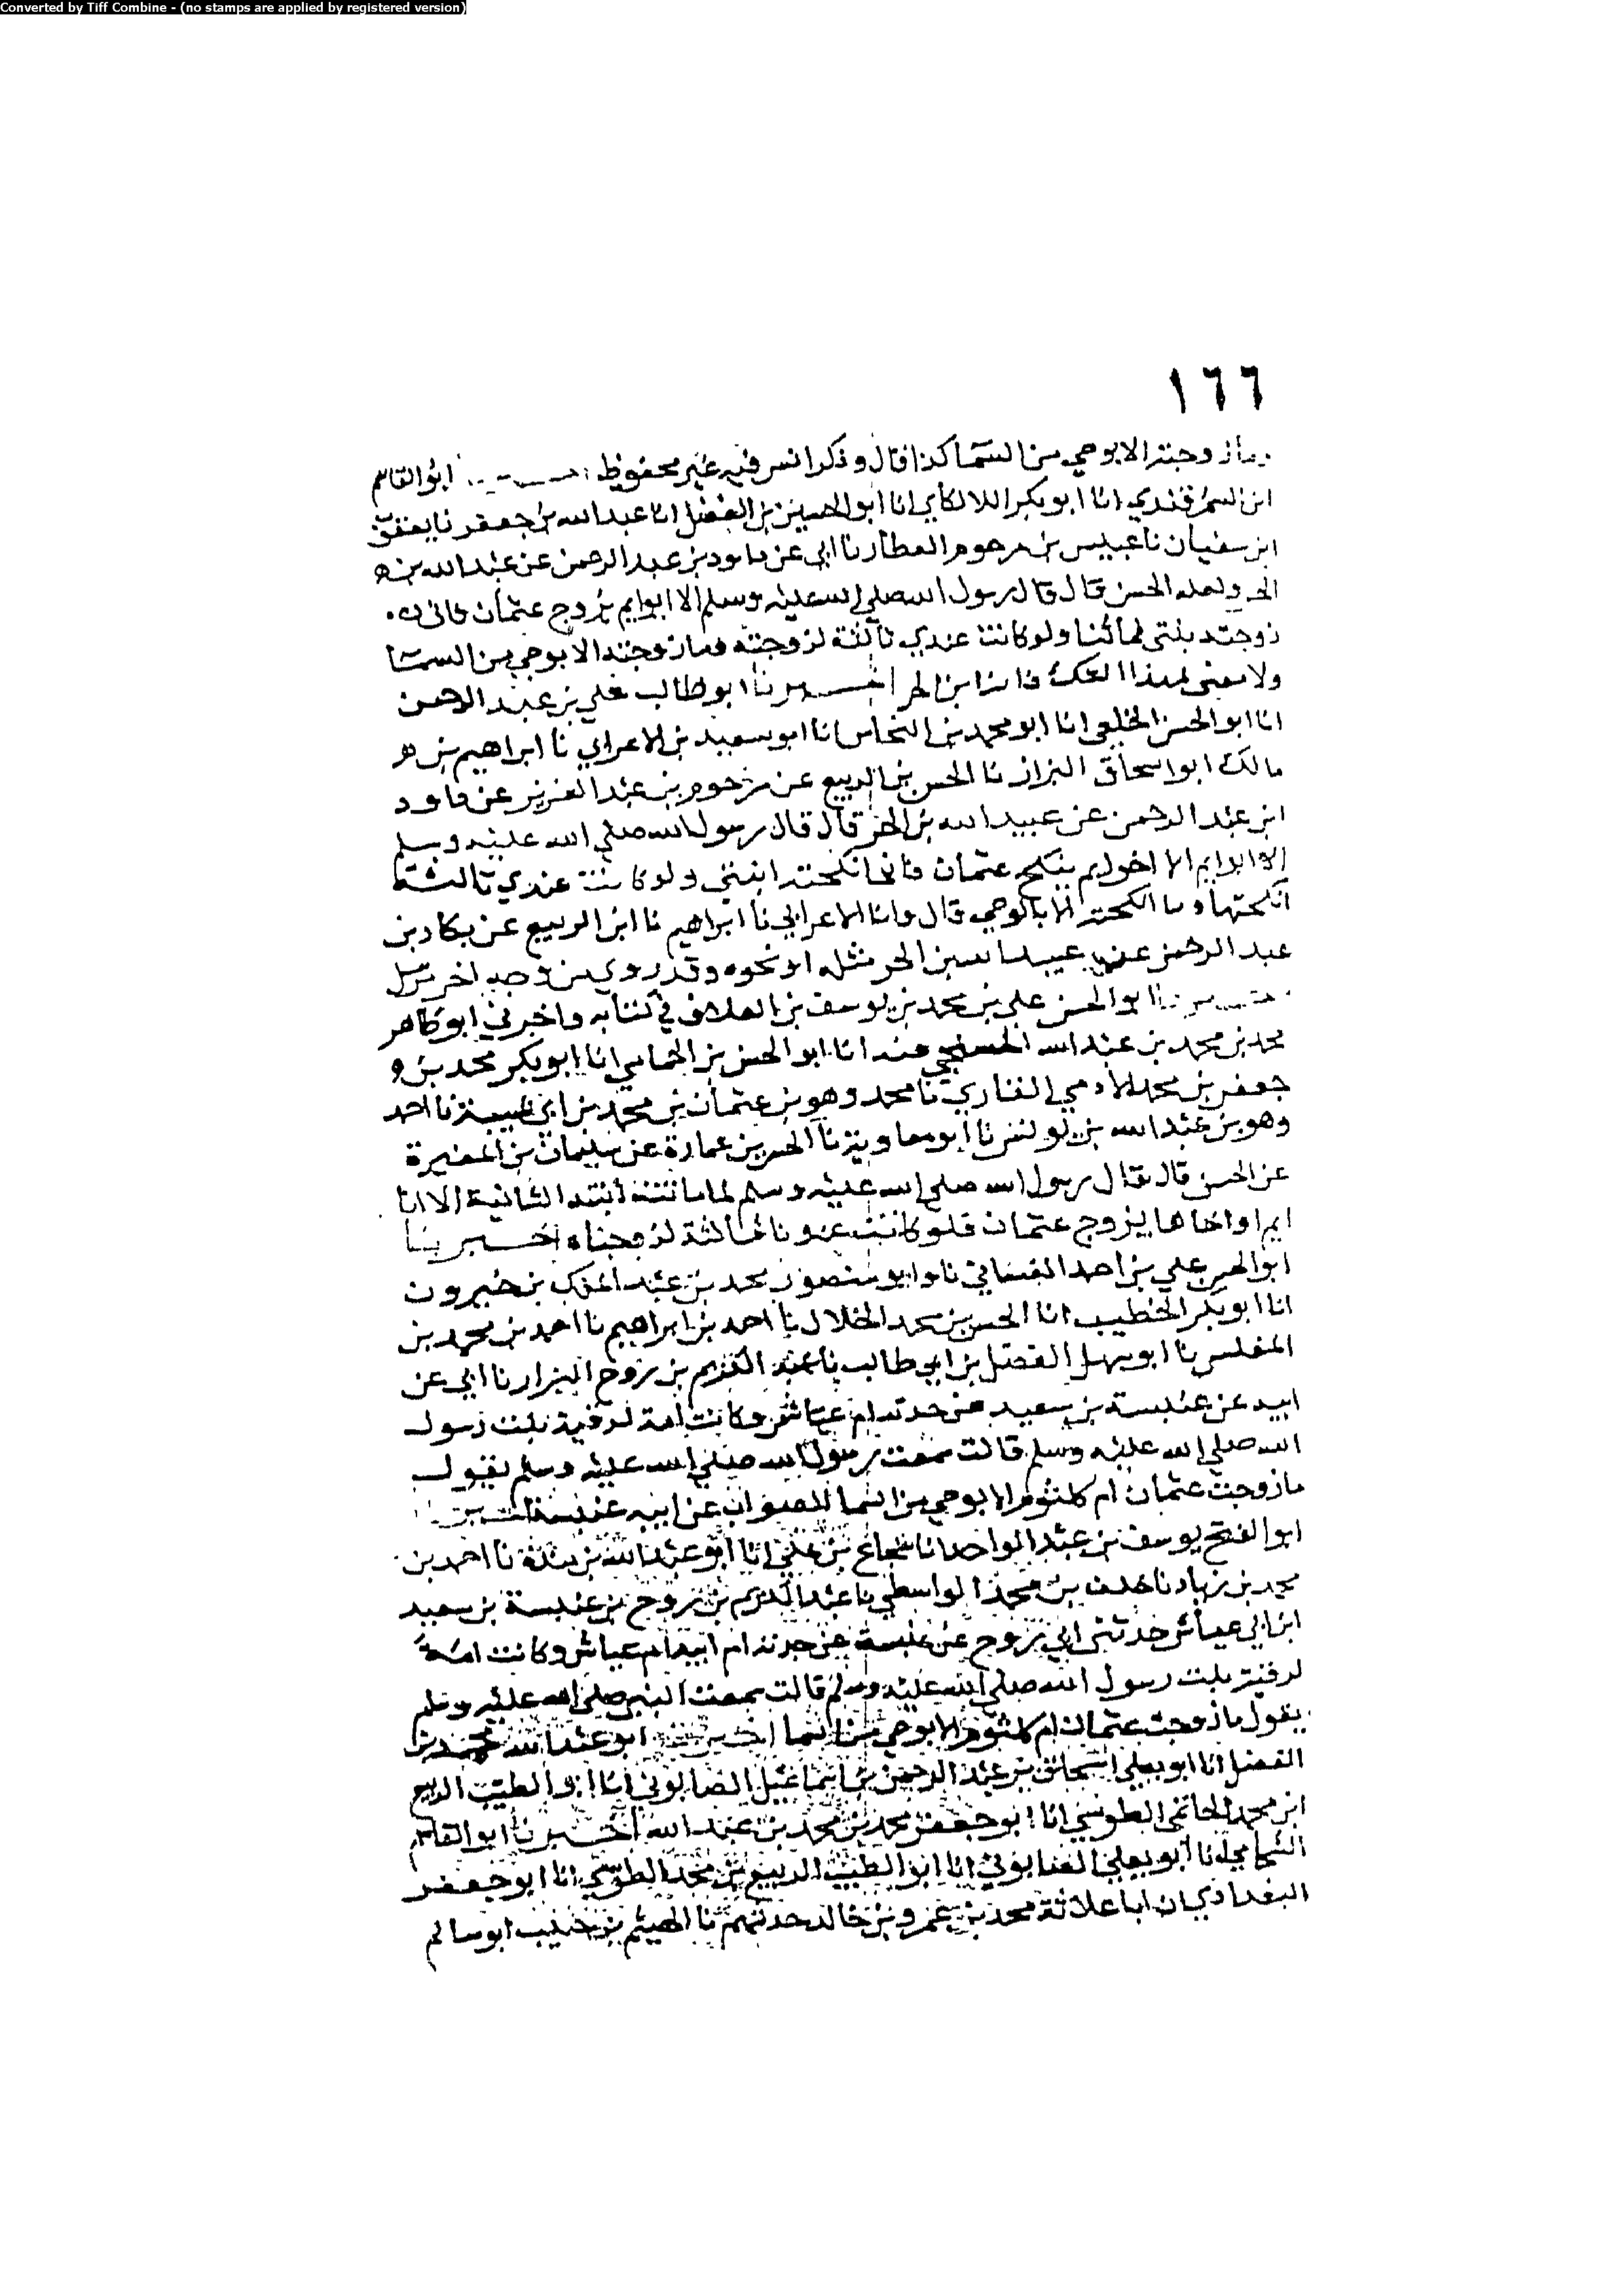 Converted by Tiff Combine - (no stamps are applied by registered version)
١٦٦
وما زوجته الا بوحي من السما كذا قال وذكر انس فيه غير محفوظ ابو القاسم
ابن السمرقندي انا ابو بكر اللالكاي انا ابو الحسين بن الفضل انا عبد الله بن جعفر نا يعقوب
ابن سفيان نا عبيس بن مرحوم العطار نا ابي عن داود بن عبد الرحمن عن عبد الله بن
الحر ولعله الحسن قال قال رسول الله صلى الله عليه وسلم الا ابو ايم يزوج عثمان فاني
زوجته بنتي فماتتا ولو كانت عندي ثالثة لزوجته وما زوجته الا بوحي من السما
ولا معنى لهذا الشك فانه ابن الحر اخبرنا ابو طالب علي بن عبد الرحمن
انا ابو الحسن الخلعي انا ابو محمد بن النحاس انا ابو سعيد بن الاعرابي نا ابراهيم بن
مالك ابو اسحاق البزاز نا الحسن بن الربيع عن مرحوم بن عبد العزيز عن داود
ابن عبد الرحمن عن عبيد الله بن الحر قال قال رسول الله صلى الله عليه وسلم
الا ابو ايم الا اخو ايم ينكح عثمان فاني انكحته ابنتي ولو كانت عندي ثالثة
انكحتها وما انكحته الا بالوحي قال وانا الاعرابي نا ابراهيم نا ابن الربيع عن بكار بن
عبد الرحمن عن عبيد الله بن الحر مثله او نحوه وقد روي من وجه اخر مرسل
اخبرنا ابو الحسن علي بن محمد بن يوسف بن العلاف في كتابه واخبرني ابو طاهر
محمد بن محمد بن عبد الله السنجي عنه انا ابو الحسن بن الحمامي انا ابو بكر محمد بن
جعفر بن محمد الادمي القاري نا محمد وهو بن عثمان بن محمد بن ابي شيبة نا احمد
وهو بن عبد الله بن يونس نا ابو معاوية نا الحسن بن عمارة عن سليمان بن المغيرة
عن الحسن قال قال رسول الله صلى الله عليه وسلم لما ماتت ابنته الثانية الا ابا
ايم او اخاها يزوج عثمان فلو كانت عندنا ثالثة لزوجناه اخبرنا
ابو الحسن علي بن احمد الغساني نا وابو منصور محمد بن عبد الملك بن خيرون
انا ابو بكر الخطيب انا الحسن بن محمد الخلال نا احمد بن ابراهيم نا احمد بن محمد بن
المغلس نا ابو سهل الفضل بن ابي طالب نا عبد الكريم بن روح البزار نا ابي عن
ابيه عن عنبسة بن سعيد عن جدته ام عياش وكانت امة لرقية بنت رسول
الله صلى الله عليه وسلم قالت سمعت رسول الله صلى الله عليه وسلم يقول
ما زوجت عثمان ام كلثوم الا بوحي من السما الصواب عن ابيه عنبسة اخبرنا
ابو الفتح يوسف بن عبد الواحد انا شجاع بن علي انا ابو عبد الله بن مندة نا احمد بن
محمد بن زياد نا خلف بن محمد الواسطي نا عبد الكريم بن روح بن عنبسة بن سعيد
ابن ابي عياش حدثني ابي روح عن عنبسة عن جدته ام ابيه ام عياش وكانت امة
لرقية بنت رسول الله صلى الله عليه وسلم قالت سمعت النبي صلى الله عليه وسلم
يقول ما زوجت عثمان ام كلثوم الا بوحي من السما اخبرنا ابو عبد الله محمد بن
الفضل انا ابو يعلي اسحاق بن عبد الرحمن بن اسماعيل الصابوني انا ابو الطيب الربيع
ابن محمد الحاتمي الطوسي انا ابو جعفر محمد بن محمد بن عبد الله اخبرنا ابو القاسم
الشحامي انا ابو يعلي الصابوني انا ابو الطيب الربيع بن محمد الطوسي انا ابو جعفر
البغدادي ان ابا علاثة محمد بن عمرو بن خالد حدثهم نا الهيثم بن حبيب ابو سالم